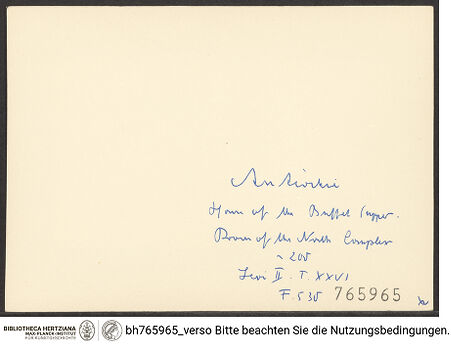 Antiochie
House of the Buffet Supper.
Room of the North Complex
~ 200
Levi II. T. XXVI
F. 530 765965
BIBLIOTHECA HERTZIANA
MAX-PLANCK-INSTITUT
FÜR KUNSTGESCHICHTE
bh765965_verso Bitte beachten Sie die Nutzungsbedingungen.